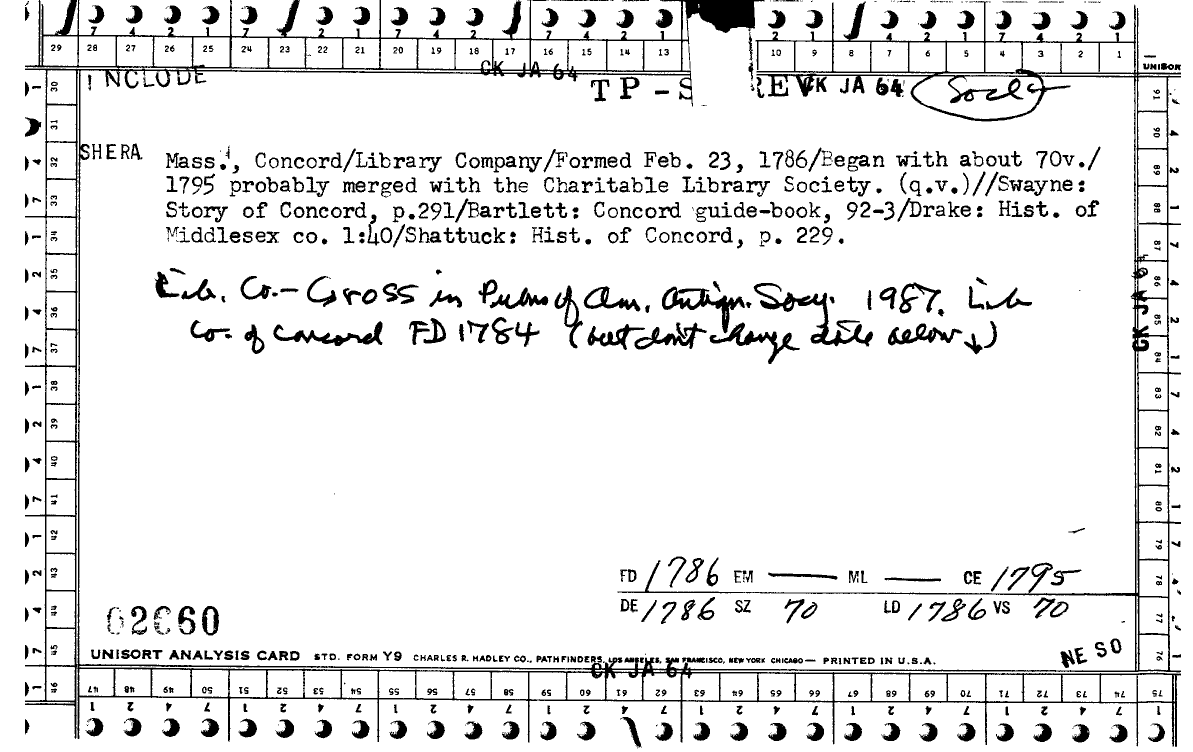 7 4 2 1 7 4 2 1 7 4 2 1 7 4 2 1 2 1 7 4 2 1 7 4 2 1
29 28 27 26 25 24 23 22 21 20 19 18 17 16 15 14 13 10 9 8 7 6 5 4 3 2 1
UNISORT
INCLUDE CK JA 64 TP-S REV CK JA 64 Socl
SHERA Mass., Concord/Library Company/Formed Feb. 23, 1786/Began with about 70v./
1795 probably merged with the Charitable Library Society. (q.v.)//Swayne:
Story of Concord, p.291/Bartlett: Concord guide-book, 92-3/Drake: Hist. of
Middlesex co. 1:40/Shattuck: Hist. of Concord, p. 229.
Lib. Co.- Gross in Pubns of Am. Antiqn. Socy. 1987. Lib
Co. of Concord FD 1784 (but don't change date below ↓)
CK JA 64
FD 1786 EM — ML — CE 1795
DE 1786 SZ 70 LD 1786 VS 70
02660
NE SO
UNISORT ANALYSIS CARD STD. FORM Y9 CHARLES R. HADLEY CO., PATHFINDERS, LOS ANGELES, SAN FRANCISCO, NEW YORK CHICAGO — PRINTED IN U.S.A.
CK JA 64
30 31 32 33 34 35 36 37 38 39 40 41 42 43 44 45 46
91 90 89 88 87 86 85 84 83 82 81 80 79 78 77 76
47 48 49 50 51 52 53 54 55 56 57 58 59 60 61 62 63 64 65 66 67 68 69 70 71 72 73 74 75
1 2 4 7 1 2 4 7 1 2 4 7 1 2 4 7 1 2 4 7 1 2 4 7 1 2 4 7 1